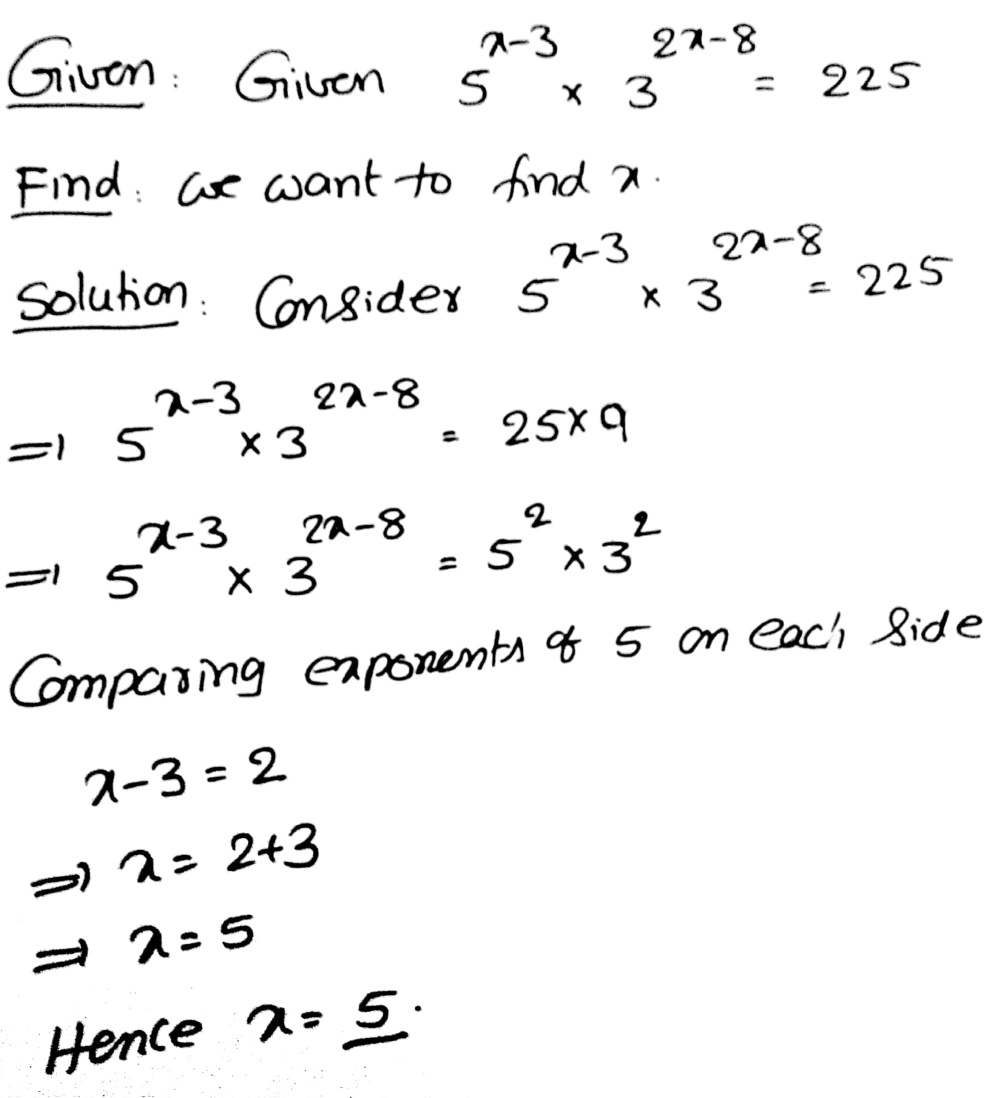 Given: Given 5^{x-3} × 3^{2x-8} = 225
Find: we want to find x.
Solution: Consider 5^{x-3} × 3^{2x-8} = 225
⇒ 5^{x-3} × 3^{2x-8} = 25×9
⇒ 5^{x-3} × 3^{2x-8} = 5^2 × 3^2
Comparing exponents of 5 on each side
x-3 = 2
⇒ x = 2+3
⇒ x = 5
Hence x = 5.